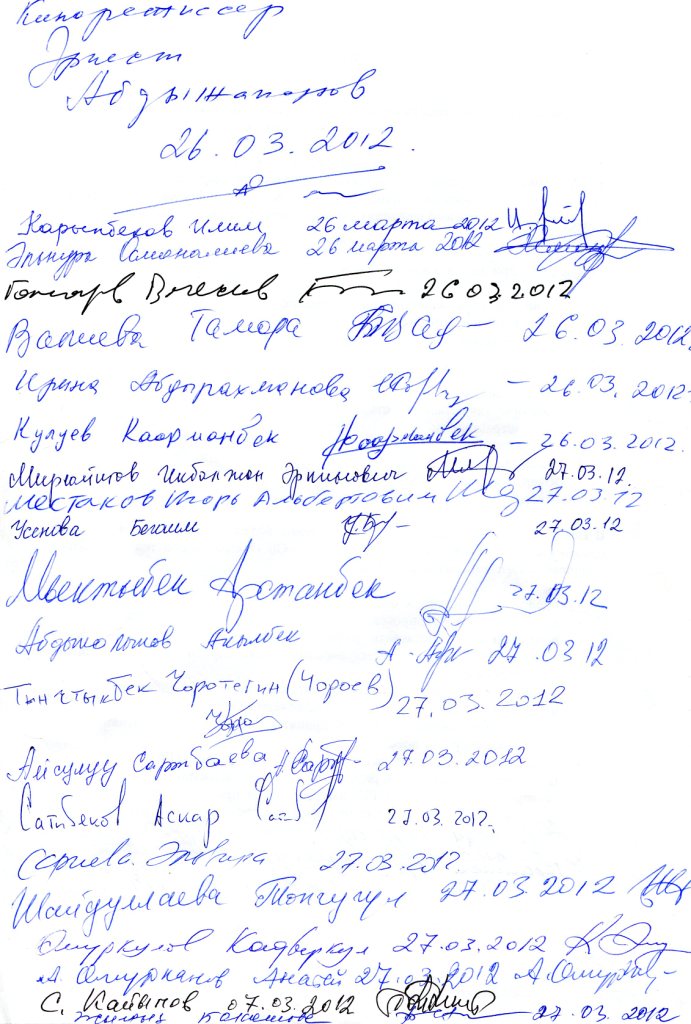 Кинорежиссер
Эрнест
Абдыжапаров
26.03.2012.
Карыпбеков Илим 26 марта 2012
Элнура Осмоналиева 26 марта 2012
Гончаров Вячеслав 26 03.2012
Валиева Тамара – 26.03.2012.
Ирина Абдырахманова – 26.03.2012.
Кулуев Каарманбек – 26.03.2012.
Эркинович 27.03.12.
Местаков Игорь Альбертович 27.03.12
Усенова Бегаим 27.03.12
Мыктыбек Арстанбек 27.03.12
Абдыжалыков Акылбек 27.03 12
Тынчтыкбек Чоротегин (Чороев) 27.03.2012
Айсулуу Сартбаева 27.03.2012
Сатыбеков Аскар 27.03.2012.
27.03.2012.
Шайдуллаева Токтугул 27.03.2012
Омуркулов Кадыркул 27.03.2012
Омурканов 27.03.2012
С. Кайыпов 07.03.2012
27.03.2012